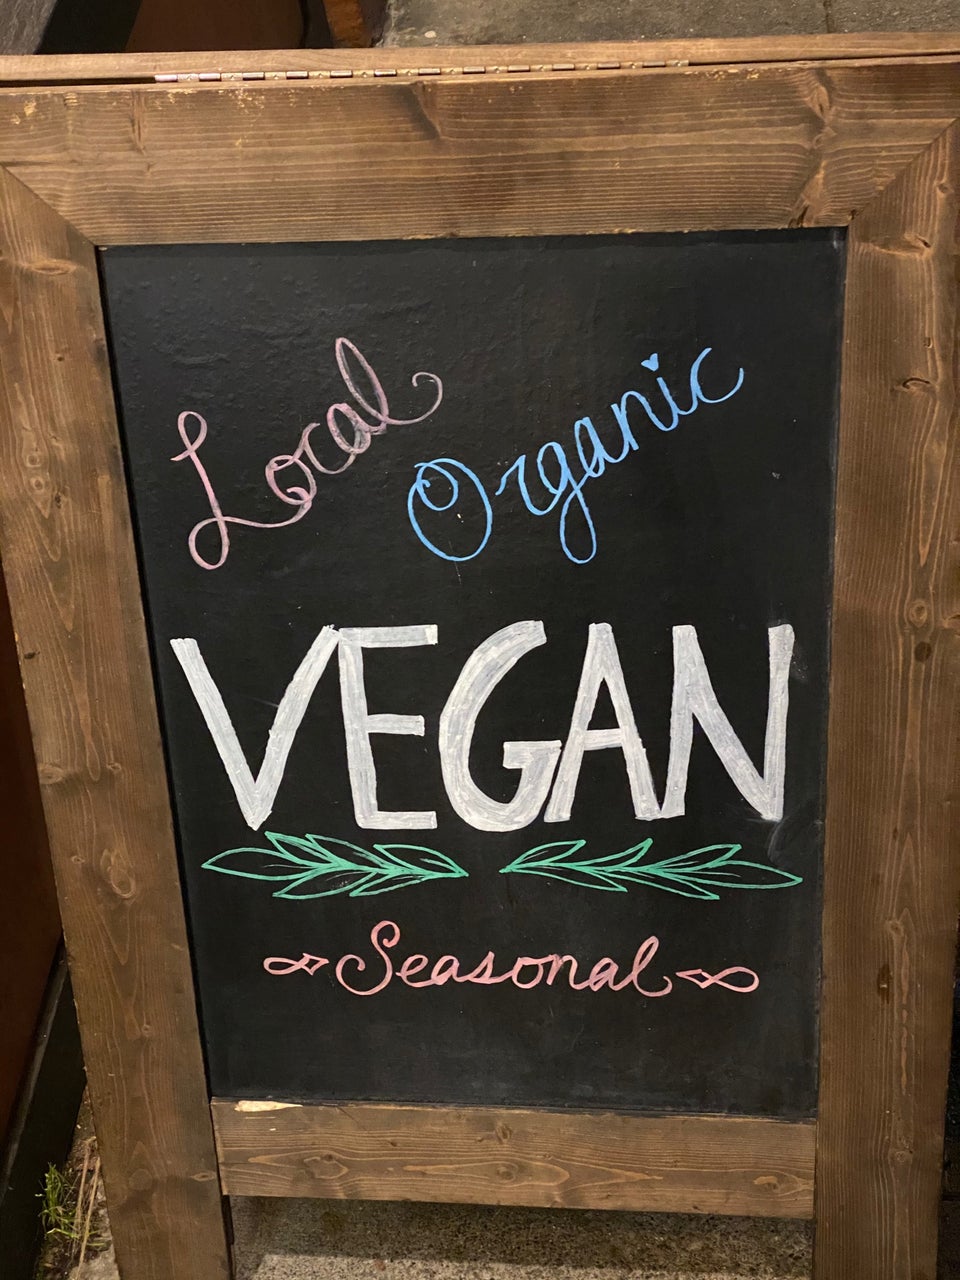 Local Organic
VEGAN
Seasonal